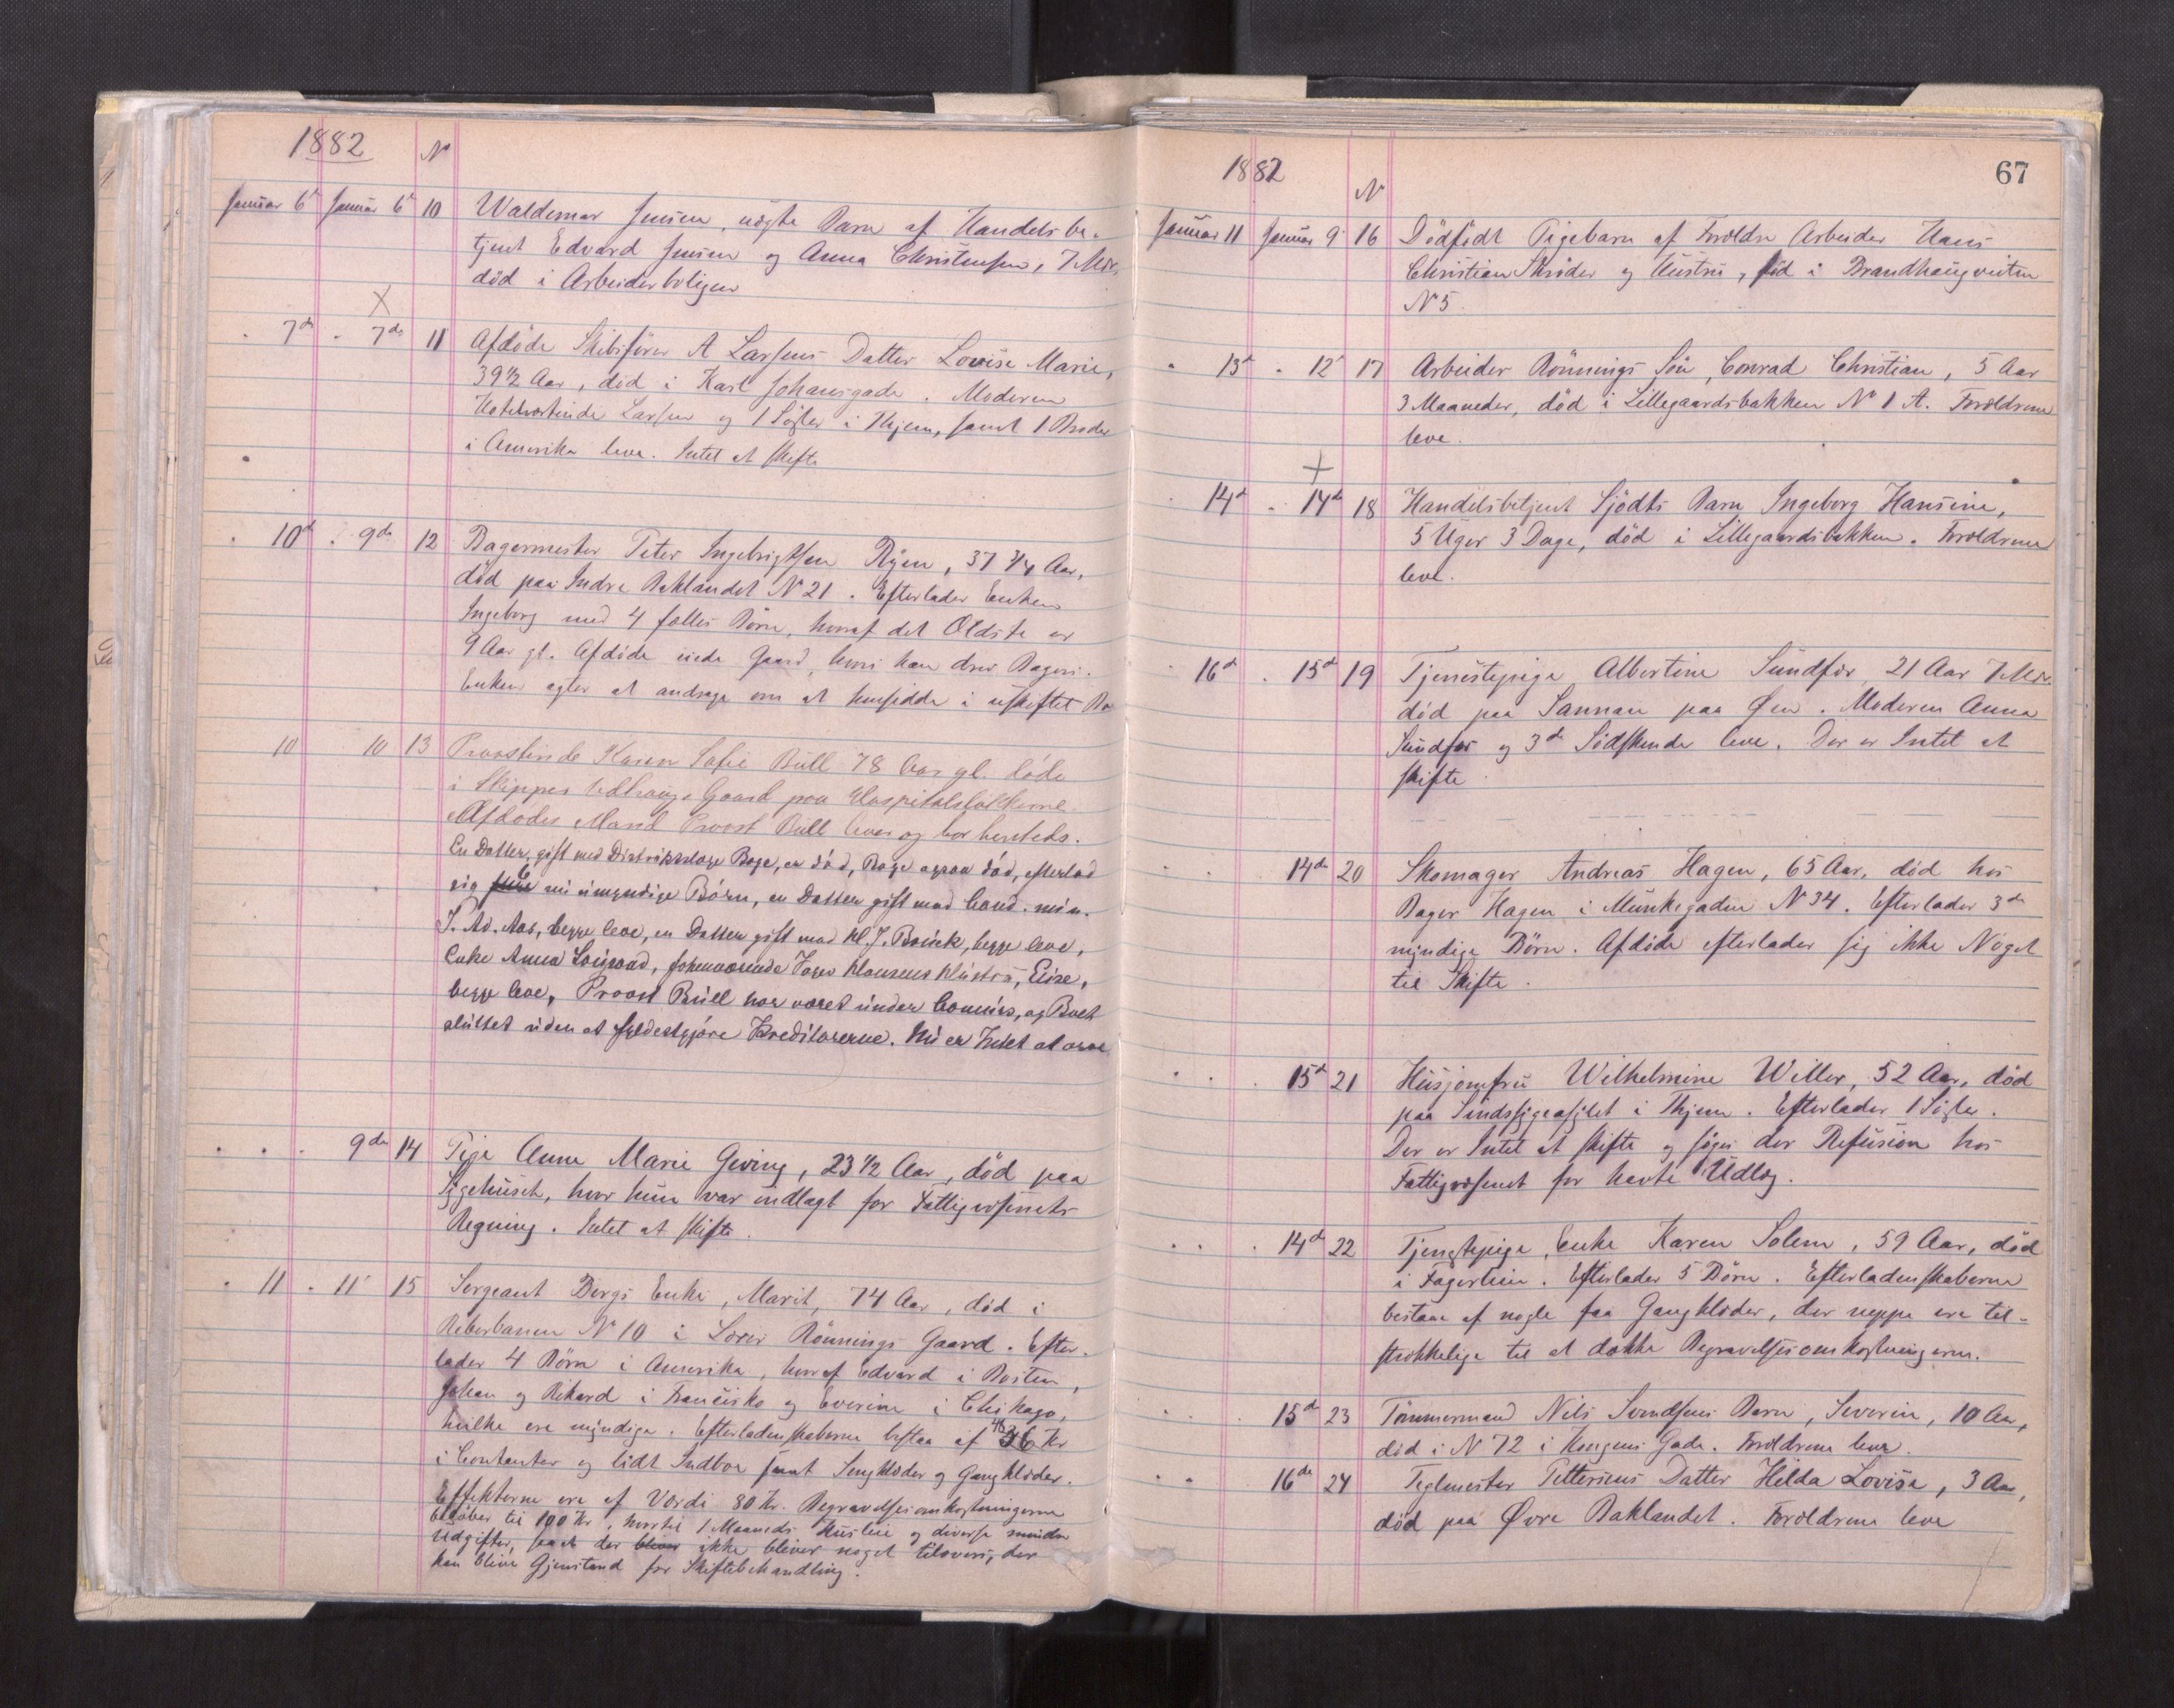 1882
No
Januar 6t Januar 6t 10 Waldemar Jensen, uægte Barn af Handelsbe-
tjent Edvard Jensen og Anna Christensen, 7 Mdr.
død i Arbeiderboligen
X
" 7de " 7de 11 Afdøde Skibsfører A Larsens Datter Lovise Marie,
39 1/2 Aar, død i Karl Johansgade. Moderen
Hotelværtinde Larsen og 1 Søster i Thjem, samt 1 Broder
i Amerika leve. Intet at skifte
" 10d " 9de 12 Bagermester Peter Ingebrigtsen Ryen, 37 3/4 Aar,
død paa Indre Baklandet No 21. Efterlader Enken
Ingeborg med 4 fælles Børn, hvoraf det Ældste er
9 Aar gl. Afdøde eiede Gaard, hvori han drev Bageri.
Enken agter at andrage om at hensidde i uskiftet Bo
10 10 13 Provstinde Karen Sofie Bull 78 Aar gl. døde
i Skipper Udhaugs Gaard paa Hospitalsløkkerne.
Afdødes Mand Provst Bull lever og bor hersteds.
En Datter, gift med Distriktslæge Boye, er død, Boye ogsaa død, efterlod
sig 6 umyndige Børn, en Datter gift med Cand. min.
T. Ad. Aas, begge leve, en Datter gift med Kl. J. Brinck, begge leve,
Enke Anna Lorgaard, forhenværende Foged Klausens Hustru, Elise,
begge leve, Provst Bull har været under Concurs, og Boet
sluttet uden at fyldestgjøre Kreditorerne. Nu er Intet at arve
" " " 9de 14 Pige Anne Marie Geving, 23 1/2 Aar, død paa
Sygehuset, hvor hun var indlagt for Fattigvæsenets
Regning. Intet at skifte.
" 11 " 11t 15 Sergeant Bergs Enke, Marit, 74 Aar, død i
Reberbanen No 10 i Rønnings Gaard. Efter-
lader 4 Børn i Amerika, hvoraf Edvard i Boston,
Johan og Rikard i Francisko og Everine i Chikago,
hvilke ere myndige. Efterladenskaberne bestaa af 46 Kr
i Contanter og lidt Indbo samt Sengklæder og Gangklæder.
Effekterne ere af Værdi 80 Kr. Begravelsesomkostningerne
beløber til 100 Kr, hvortil 1 Maaneds Husleie og diverse mindre
Udgifter, saa at der bliver ikke bliver noget tilovers, der
kan blive Gjenstand for Skiftebehandling.
67
1882
No
Januar 11 Januar 9 16 Dødfødt Pigebarn af Forældre Arbeider Hans
Christian Skrøder og Hustru, fød i Brandhaugveiten
No 5.
" 13d " 12t 17 Arbeider Rønnings Søn, Conrad Christian, 5 Aar
3 Maaneder, død i Lillegaardsbakken No 1 A. Forældrene
leve.
+
" 14d " 14de 18 Handelsbetjent Sjødts Barn Ingeborg Hansine,
5 Uger 3 Dage, død i Lillegaardsbakken. Forældrene
leve.
" 16d " 15d 19 Tjenestepige Albertine Sundfær, 21 Aar 7 Mdr.
død paa Sannan paa Øen. Moderen Anna
Sundfær og 3de Sødskende leve. Der er Intet at
skifte.
" " 14de 20 Skomager Andreas Hagen, 65 Aar, død hos
Bager Hagen i Munkegaden No 34. Efterlader 3de
myndige Børn. Afdøde efterlader sig ikke Noget
til Skifte.
" " " 15d 21 Husjomfru Wilhelmine Willer, 52 Aar, død
paa Sindssygeasylet i Thjem. Efterlader 1 Søster.
Der er Intet at skifte og søges der Refusion hos
Fattigvæsenet for havte Udlæg.
" " " 14d 22 Tjenestepige, Enke Karen Solem, 59 Aar, død
i Fagerlien. Efterlader 5 Børn. Efterladenskaberne
bestaa af nogle faa Gangklæder, der neppe ere til-
strækkelige til at dække Begravelsesomkostningerne.
" " 15d 23 Tømmermand Nils Svendsens Barn, Severin, 10 Aar,
død i No 72 i Kongens Gade. Forældrene leve.
" " 16de 24 Teglmester Pettersens Datter Hilda Lovise, 3 Aar,
død paa Øvre Baklandet. Forældrene leve